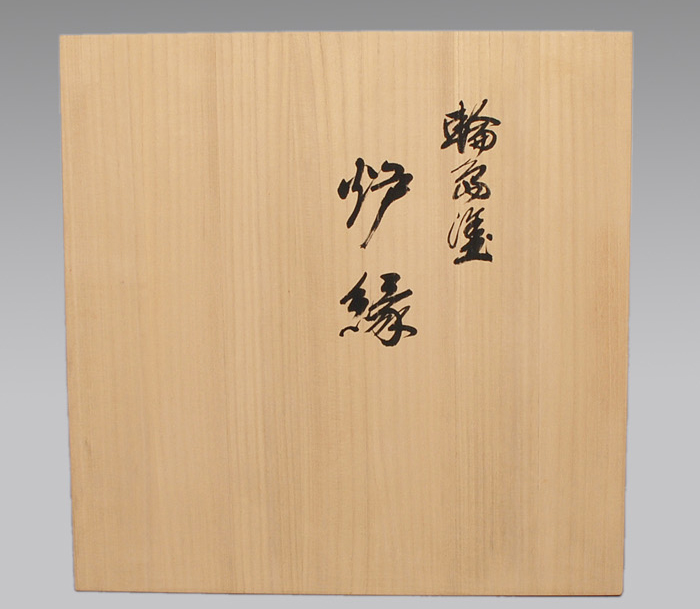 輪島塗
炉縁